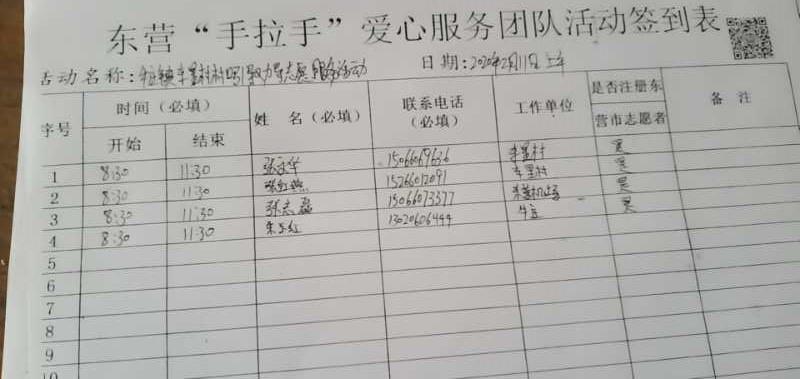 东营“手拉手”爱心服务团队活动签到表
活动名称: 志愿服务活动 日期:2020年2月11日上午
序号 时间(必填) 姓 名(必填) 联系电话(必填) 工作单位 是否注册东营市志愿者 备 注
开始 结束
1 8:30 11:30 张文华 15066069636 李屋村 是
2 8:30 11:30 15266012091 李屋村 是
3 8:30 11:30 张志磊 15066073377 是
4 8:30 11:30 13020606444 是
5
6
7
8
9
10